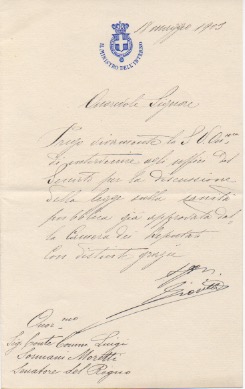 IL MINISTRO DELL'INTERNO
18 maggio 1903
Onorevole Signore
Prego vivamente la S.V. On.ma
di intervenire alle sedute del
Senato per la discussione
della legge sulla sanità
pubblica già approvata dal
la Camera dei Deputati
Con distinti
Giolitti
Onor.mo
Sig. Conte Comm. Luigi
Sormani Moretti
Senatore del Regno